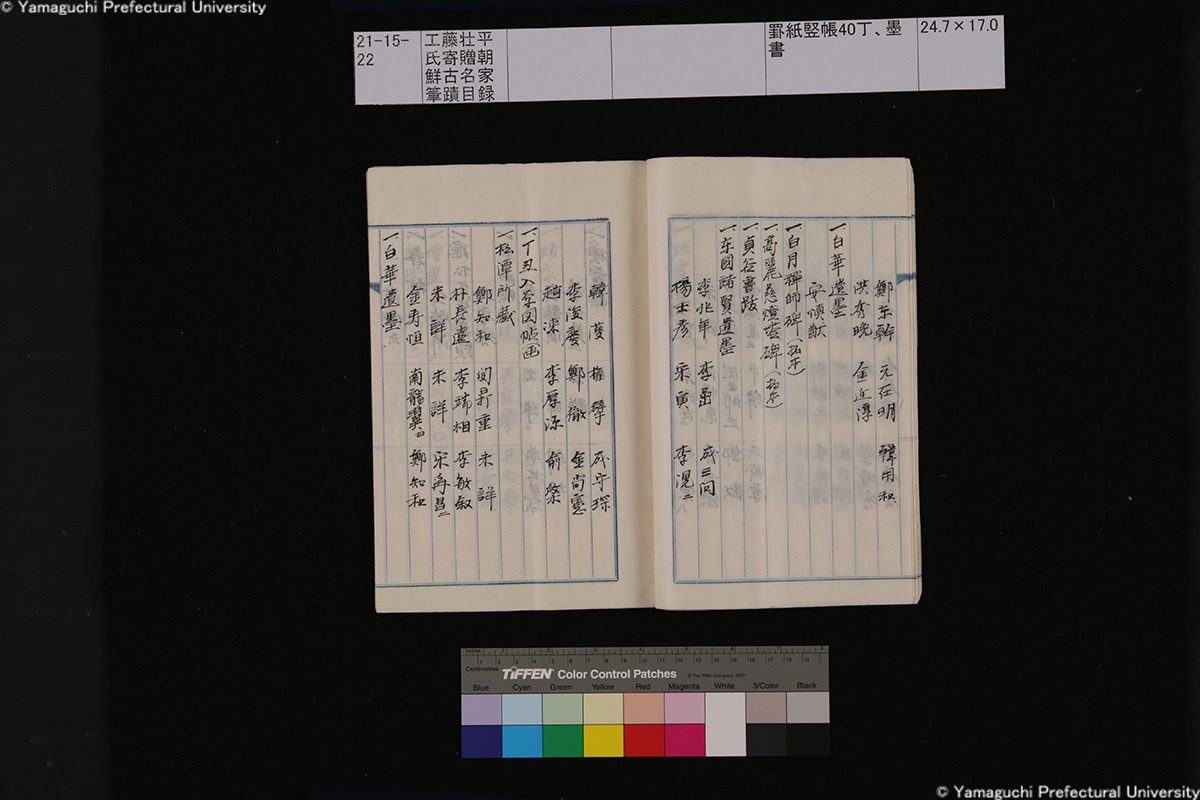 © Yamaguchi Prefectural University
21-15-22
工藤壮平
氏寄贈朝
鮮古名家
筆蹟目録
罫紙竪帳40丁、墨書
24.7×17.0
鄭东幹 元在明 韓用和
洪秀晩 金近淳
一、白華遺墨
安煩猷
一、白月禅師碑(拓本)
一、高麗慈燈塔碑(拓本)
一、貞谷書跋
一、东國諸賢遺墨
李兆年 李嵒 成三问
楊士彦 宋寅 李滉二
韓濩 権擥 成守琛
李浚慶 鄭澈 金尚憲
趙涑 李厚源 俞棨
一、丁丑入学図帖(画)
一、松潭所蔵
鄭知和 閔昇重 未詳
朴長遠 李端相 李敏叙
未詳 未詳 宋再昌二
金寿恒 南龍翼四 鄭知和
一、白華遺墨
inches
Centimetres
TIFFEN Color Control Patches
© The Tiffen Company, 2007
Blue Cyan Green Yellow Red Magenta White 3/Color Black
© Yamaguchi Prefectural University